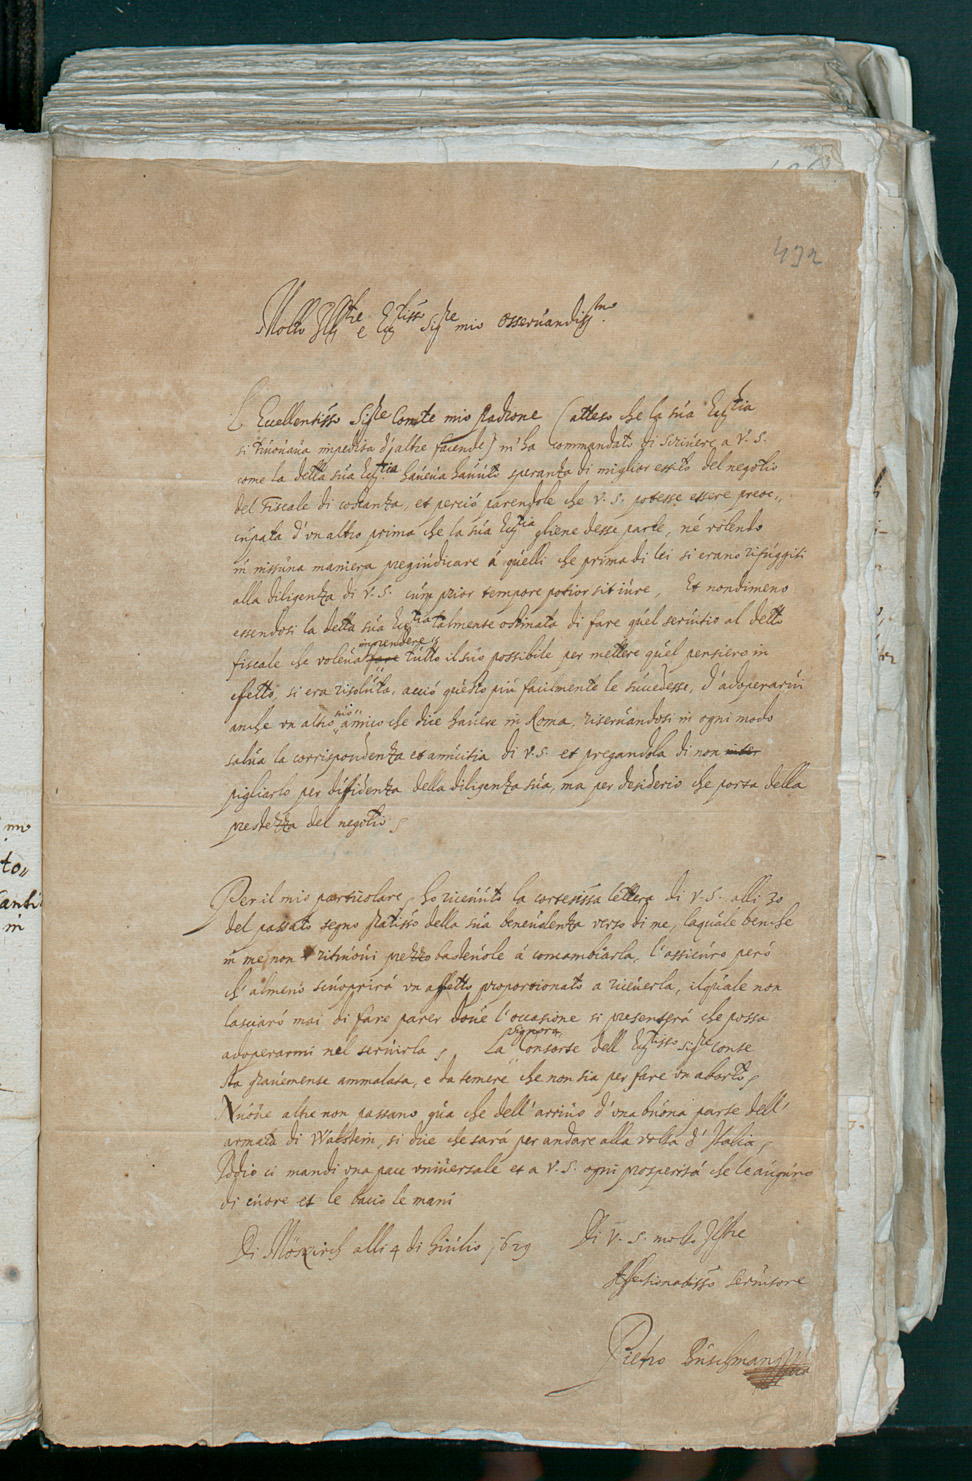 432
Molto Ill.tre e Ecc.tiss.o Sig.re mio osseruandiss.mo
L'Eccellentiss.o Sig.re Conte mio Padrone (atteso che la sua Ecc.tia
si truouaua impedita d'altre facende) m'ha commandato di scriuere a V. S.
come la detta sua Ecc.tia haueua hauuto speranza di miglior essito del negotio
del Fiscale di costanza, et perciò parendole che V. S. potesse essere preoc„
cupata d'vn altro prima che la sua Ecc.tia gliene desse parte, nè volendo
in nissuna maniera pregiudicare à quelli che prima di lei si erano rifuggiti
alla diligenza di V. S. cum prior tempore potior sit iure, Et nondimeno
essendosi la detta sua Ecc.tia talmente ostinata di fare quel seruitio al detto
imprendere
fiscale che voleua fare tutto il suo possibile per mettere quel pensiero in
effetto, si era risoluta, acciò questo più facilmente le succedesse, d'adoperarui
anche vn altro suo amico che dice hauere in Roma, riseruandosi in ogni modo
salua la corrispondenza et amicitia di V. S. et pregandola di non
pigliarlo per diffidenza della diligenza sua, ma per desiderio che porta della
prestezza del negotio,
Per il mio particolare, ho riceuuto la cortesissa lettera di V. S. alli 30
del passato segno gratiss.o della sua beneuolenza verso di me, laquale benche
in me non ritruoui prezzo basteuole à concambiarla, l'assicuro però
ch'almeno scuoprirà vn affetto proporcionato a riceuerla, ilquale non
lasciarò mai di fare parer doue l'occasione si presenterà che possa
adoperarmi nel seruirla, La signora Consorte dell' Ecc.tisso Sig.re Conte
sta grauemense ammalata, e da temere che non sia per fare vn aborto,
Nuoue altre non passano qua che dell'arriuo d'vna buona parte dell'
armata di Walstein, si dice che sarà per andare alla volta d'Italia,
Iddio ci mandi vna pace vniuersale et a V. S. ogni prosperità che le auguro
di cuore et le bacio le mani
Di Möskirch alli 4 di Giulio 1629 Di V. S. molto Ill.tre
Affectionatiss.o seruitore
Pietro Buschman